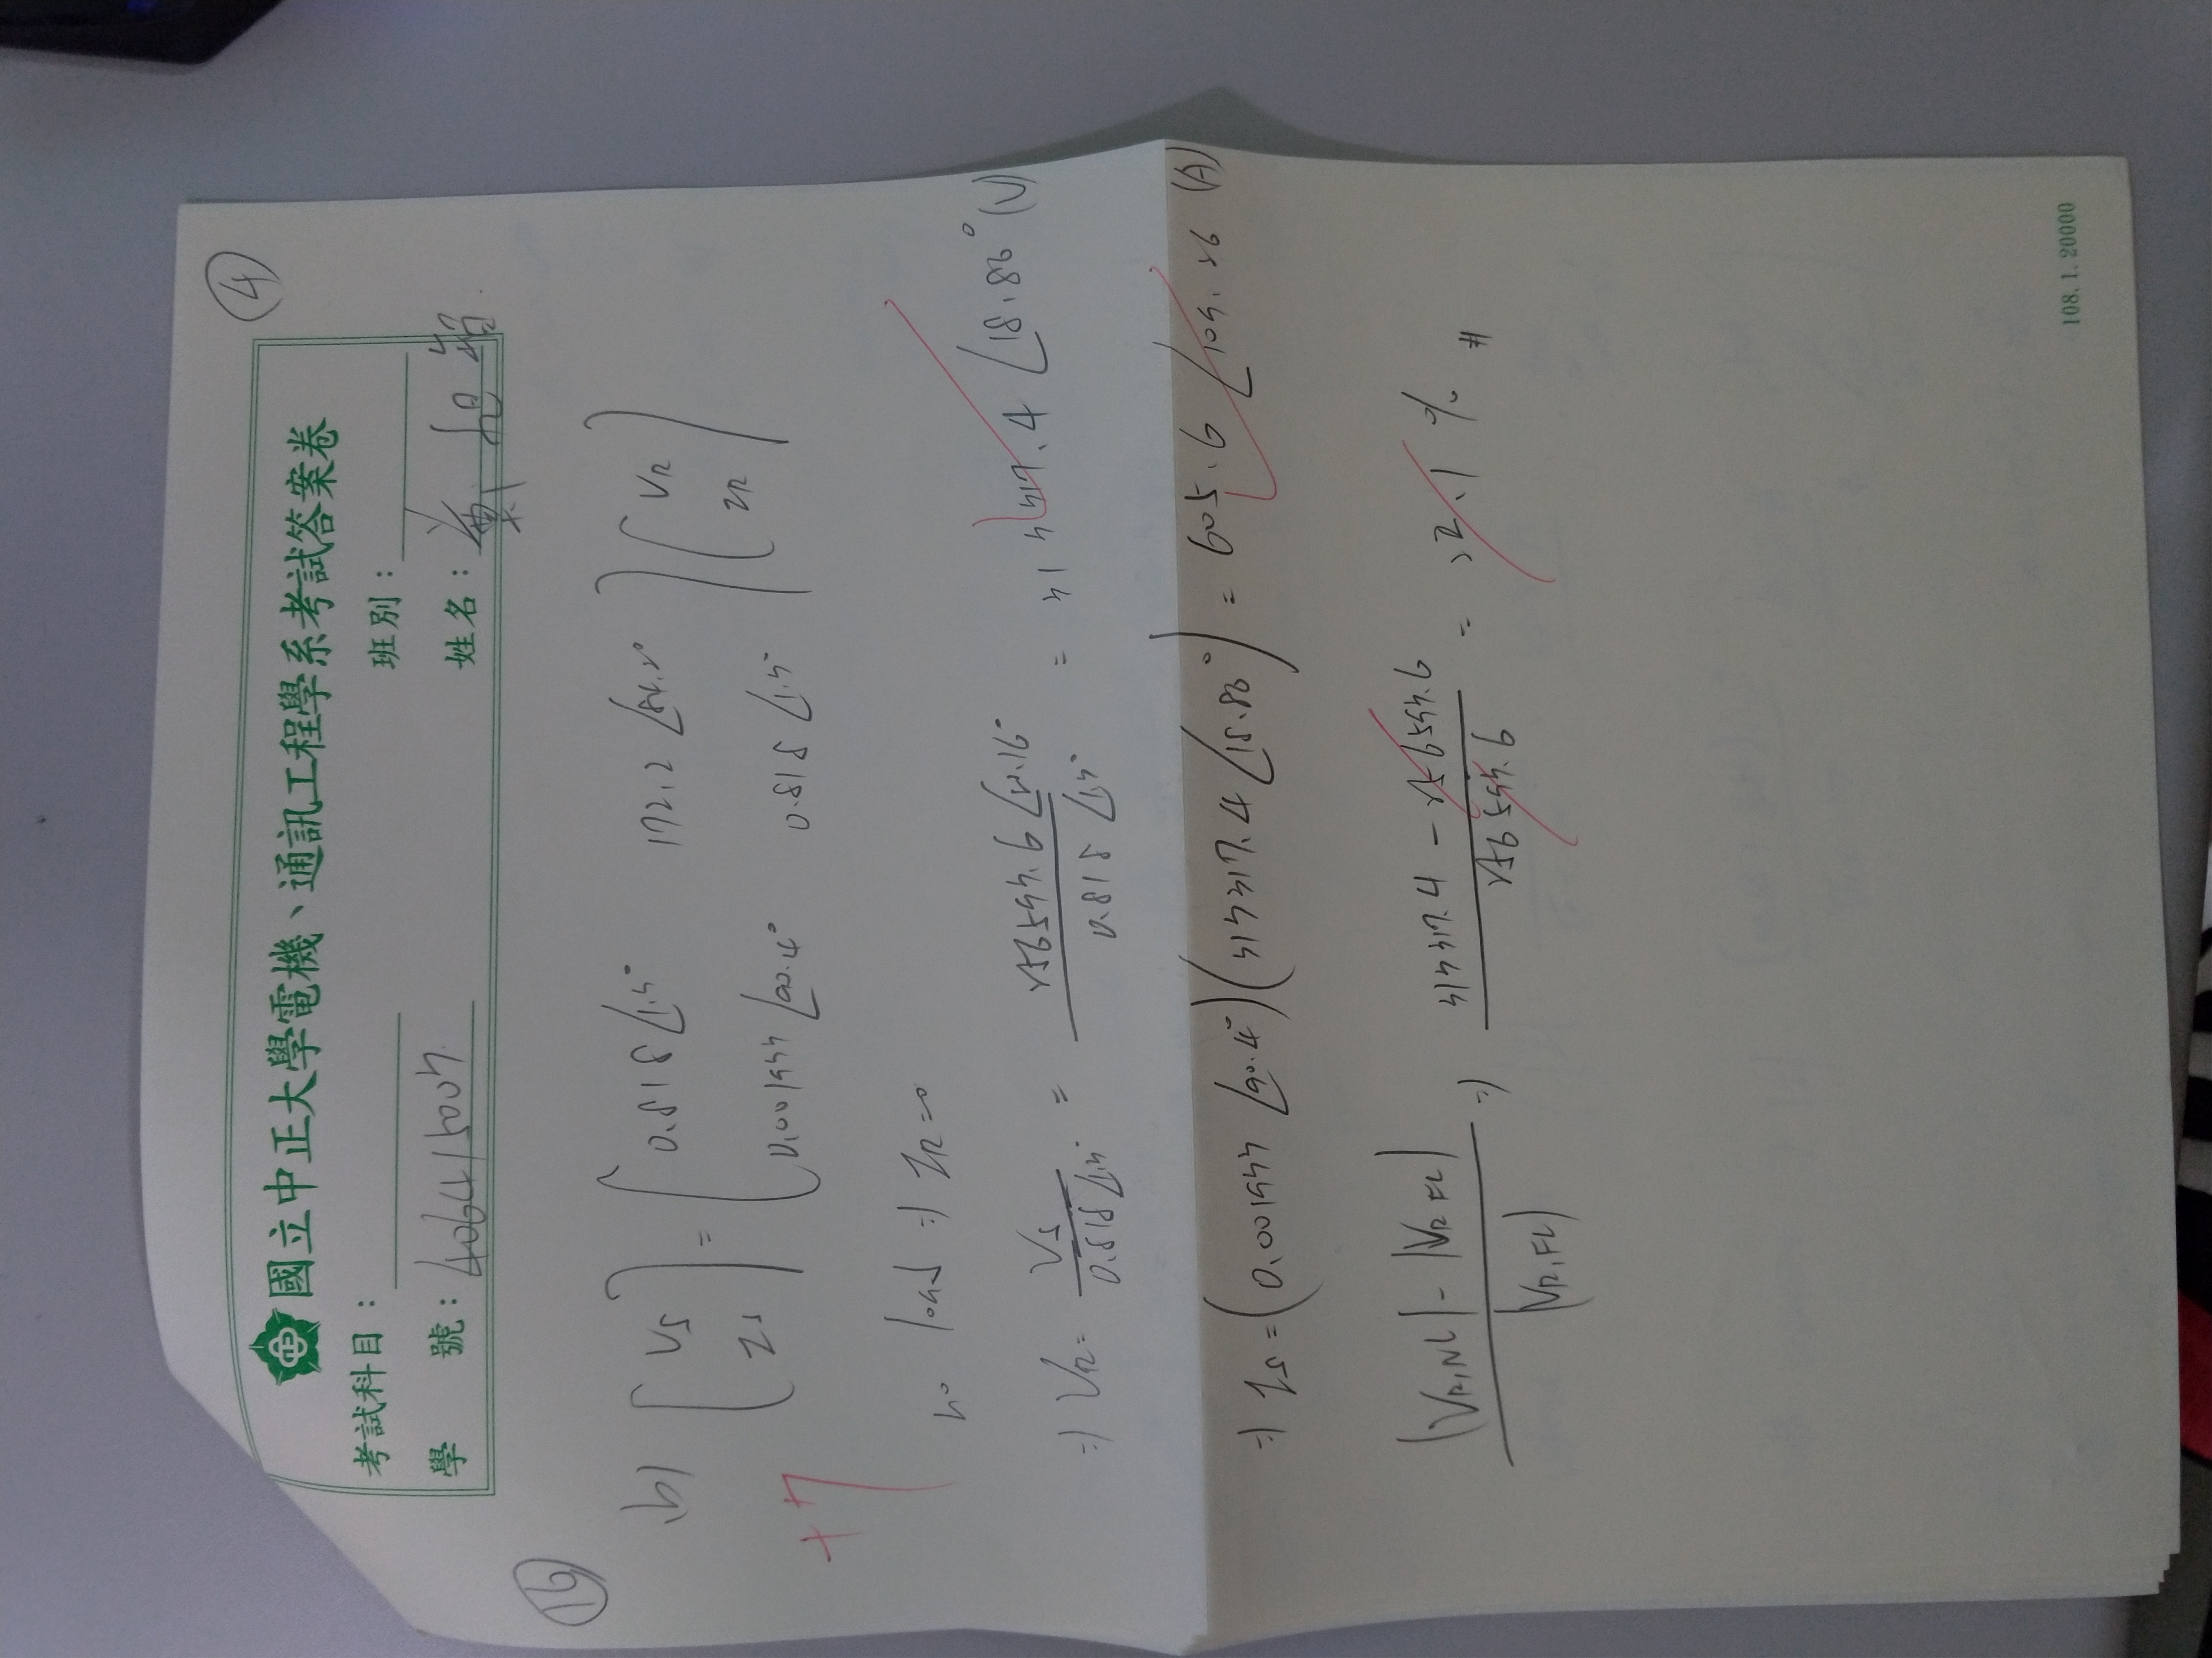 ④
國立中正大學電機、通訊工程學系考試答案卷
考試科目：
班別：
學 號：406415003
姓名： 旭
⑯
(b) [VS IS] = [0.818∠1.3° 172.2∠84.2° 0.001933∠90.4° 0.818∠1.3°] [VR IR]
+7
no load ⇒ IR=0
⇒ VR = VS / 0.818∠1.3° = 256593.6∠20.16° / 0.818∠1.3° = 313317.4∠18.86° (V)
⇒ IS = (0.001933∠90.4°)(313317.4∠18.86°) = 605.6∠109.26 (A)
|VR,NL| - |VR FL| / |VR,FL| ⇒ 313317.4 - 256593.6 / 256593.6 = 22.1% #
108.1.20000